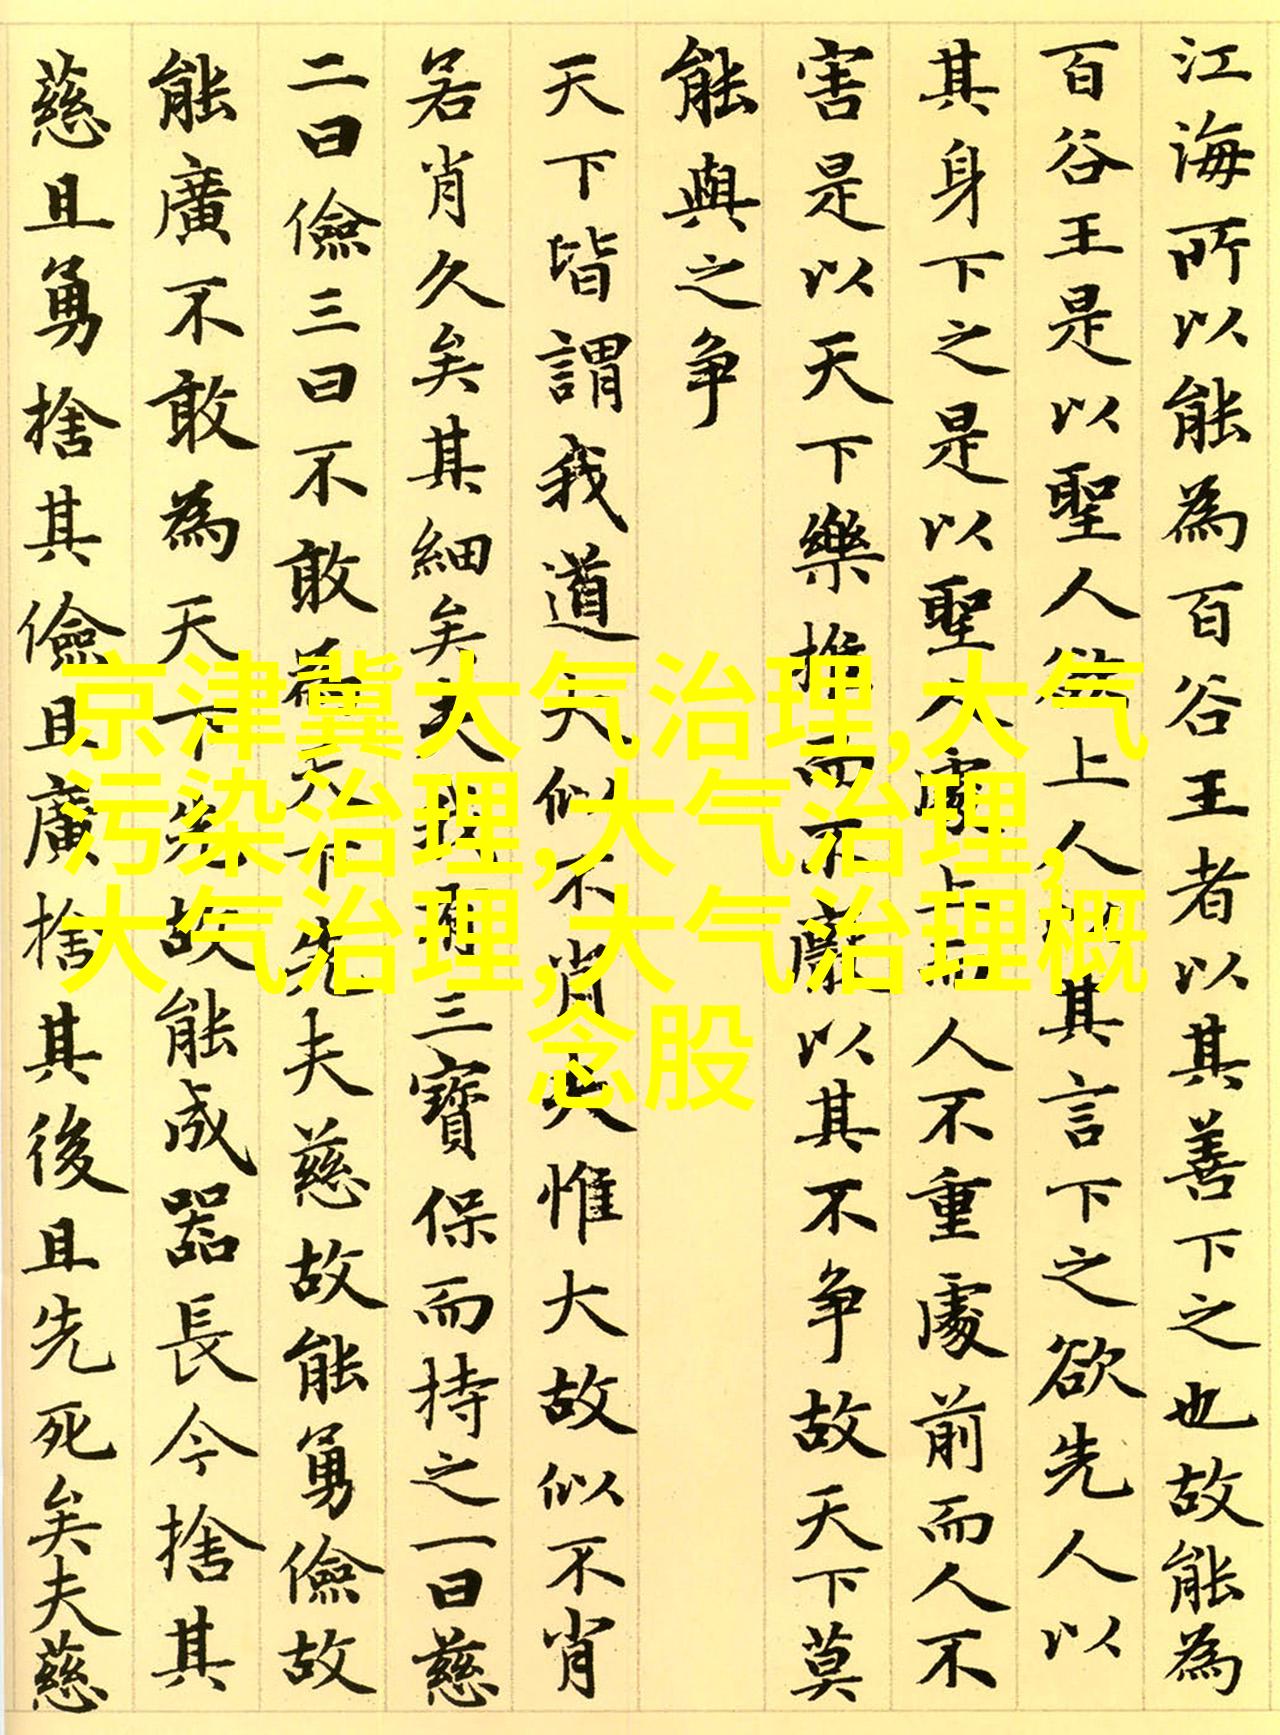 江海所以能為百谷王者以其善下之也故能為
百谷王是以聖人欲上人以其言下之欲先人以
其身下之是以聖人處上而人不重處前而人不
害是以天下樂推而不厭以其不争故天下莫
能與之争
天下皆謂我道大似不肖夫惟大故似不肖
若肖久矣其細矣夫我三寶保而持之一曰慈
二曰儉三曰不敢為天下先夫慈故能勇儉故
能廣不敢為天下先故能成器長今捨其
慈且勇捨其儉且廣捨其後且先死矣夫慈
京津冀大气治理,大气
污染治理,大气治理,
大气治理,大气治理概
念股